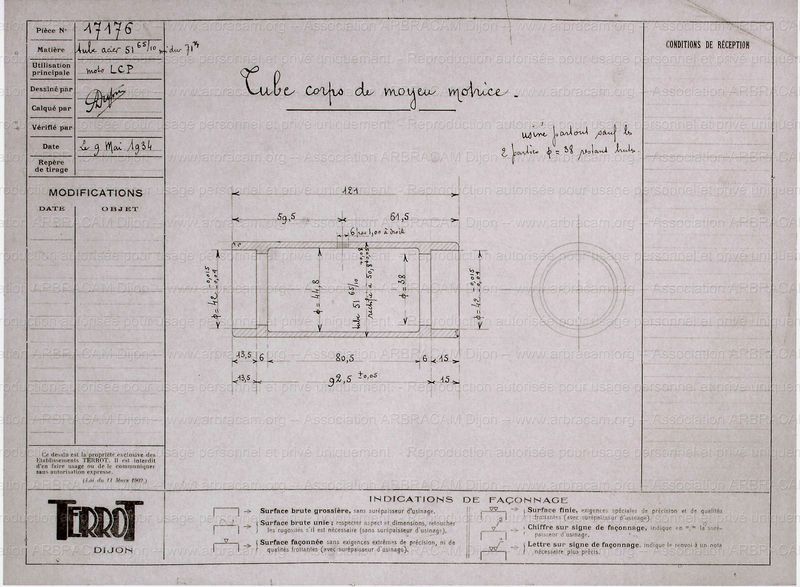 Pièce N° 17176
Matière tube acier 51 65/10 mi dur
Utilisation principale moto LCP
Dessiné par
Calqué par
Vérifié par
Date Le 9 Mai 1934
Repère de tirage
MODIFICATIONS
DATE OBJET
Tube corps de moyeu motrice.
usiné partout sauf les
2 parties φ = 38 restant brutes
CONDITIONS DE RÉCEPTION
121
59,5 61,5
6 pas 1,00 à droite
φ = 42 -0,015
φ = 44,8
tube 51 65/10
rectifié à 50,8
φ = 38
φ = 42 -0,015
13,5 6 80,5 6 15
13,5 92,5 ±0,05 15
Ce dessin est la propriété exclusive des
Etablissements TERROT. Il est interdit
d'en faire usage ou de le communiquer
sans autorisation expresse.
(Loi du 11 Mars 1902.)
TERROT
DIJON
INDICATIONS DE FAÇONNAGE
Surface brute grossière, sans surépaisseur d'usinage.
Surface brute unie; respecter aspect et dimensions, retoucher
les rugosités s'il est nécessaire (sans surépaisseur d'usinage).
Surface façonnée sans exigences extrêmes de précision, ni de
qualités frottantes (avec surépaisseur d'usinage).
Surface finie, exigences spéciales de précision et de qualités
frottantes (avec surépaisseur d'usinage).
Chiffre sur signe de façonnage, indique en m/m la suré-
paisseur d'usinage.
Lettre sur signe de façonnage, indique le renvoi à un nota
nécessaire plus précis.
www.arbracam.org – Association ARBRACAM Dijon – Reproduction autorisée pour usage personnel et privé uniquement.